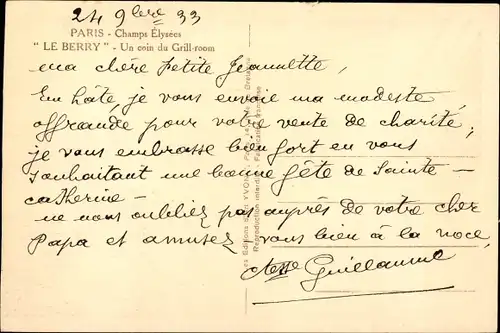 24 9bre 33
PARIS - Champs Élysées
" LE BERRY " - Un coin du Grill-room
ma chère petite Jeannette,
En hâte, je vous envoie ma modeste
offrande pour votre vente de charité,
je vous embrasse bien fort en vous
souhaitant une bonne fête de Sainte
catherine -
ne nous oubliez pas auprès de votre cher
Papa et amusez vous bien à la noce
Ctesse Guillaume
Les Editions d'Art YVON
Reproduction interdite Fabrication française